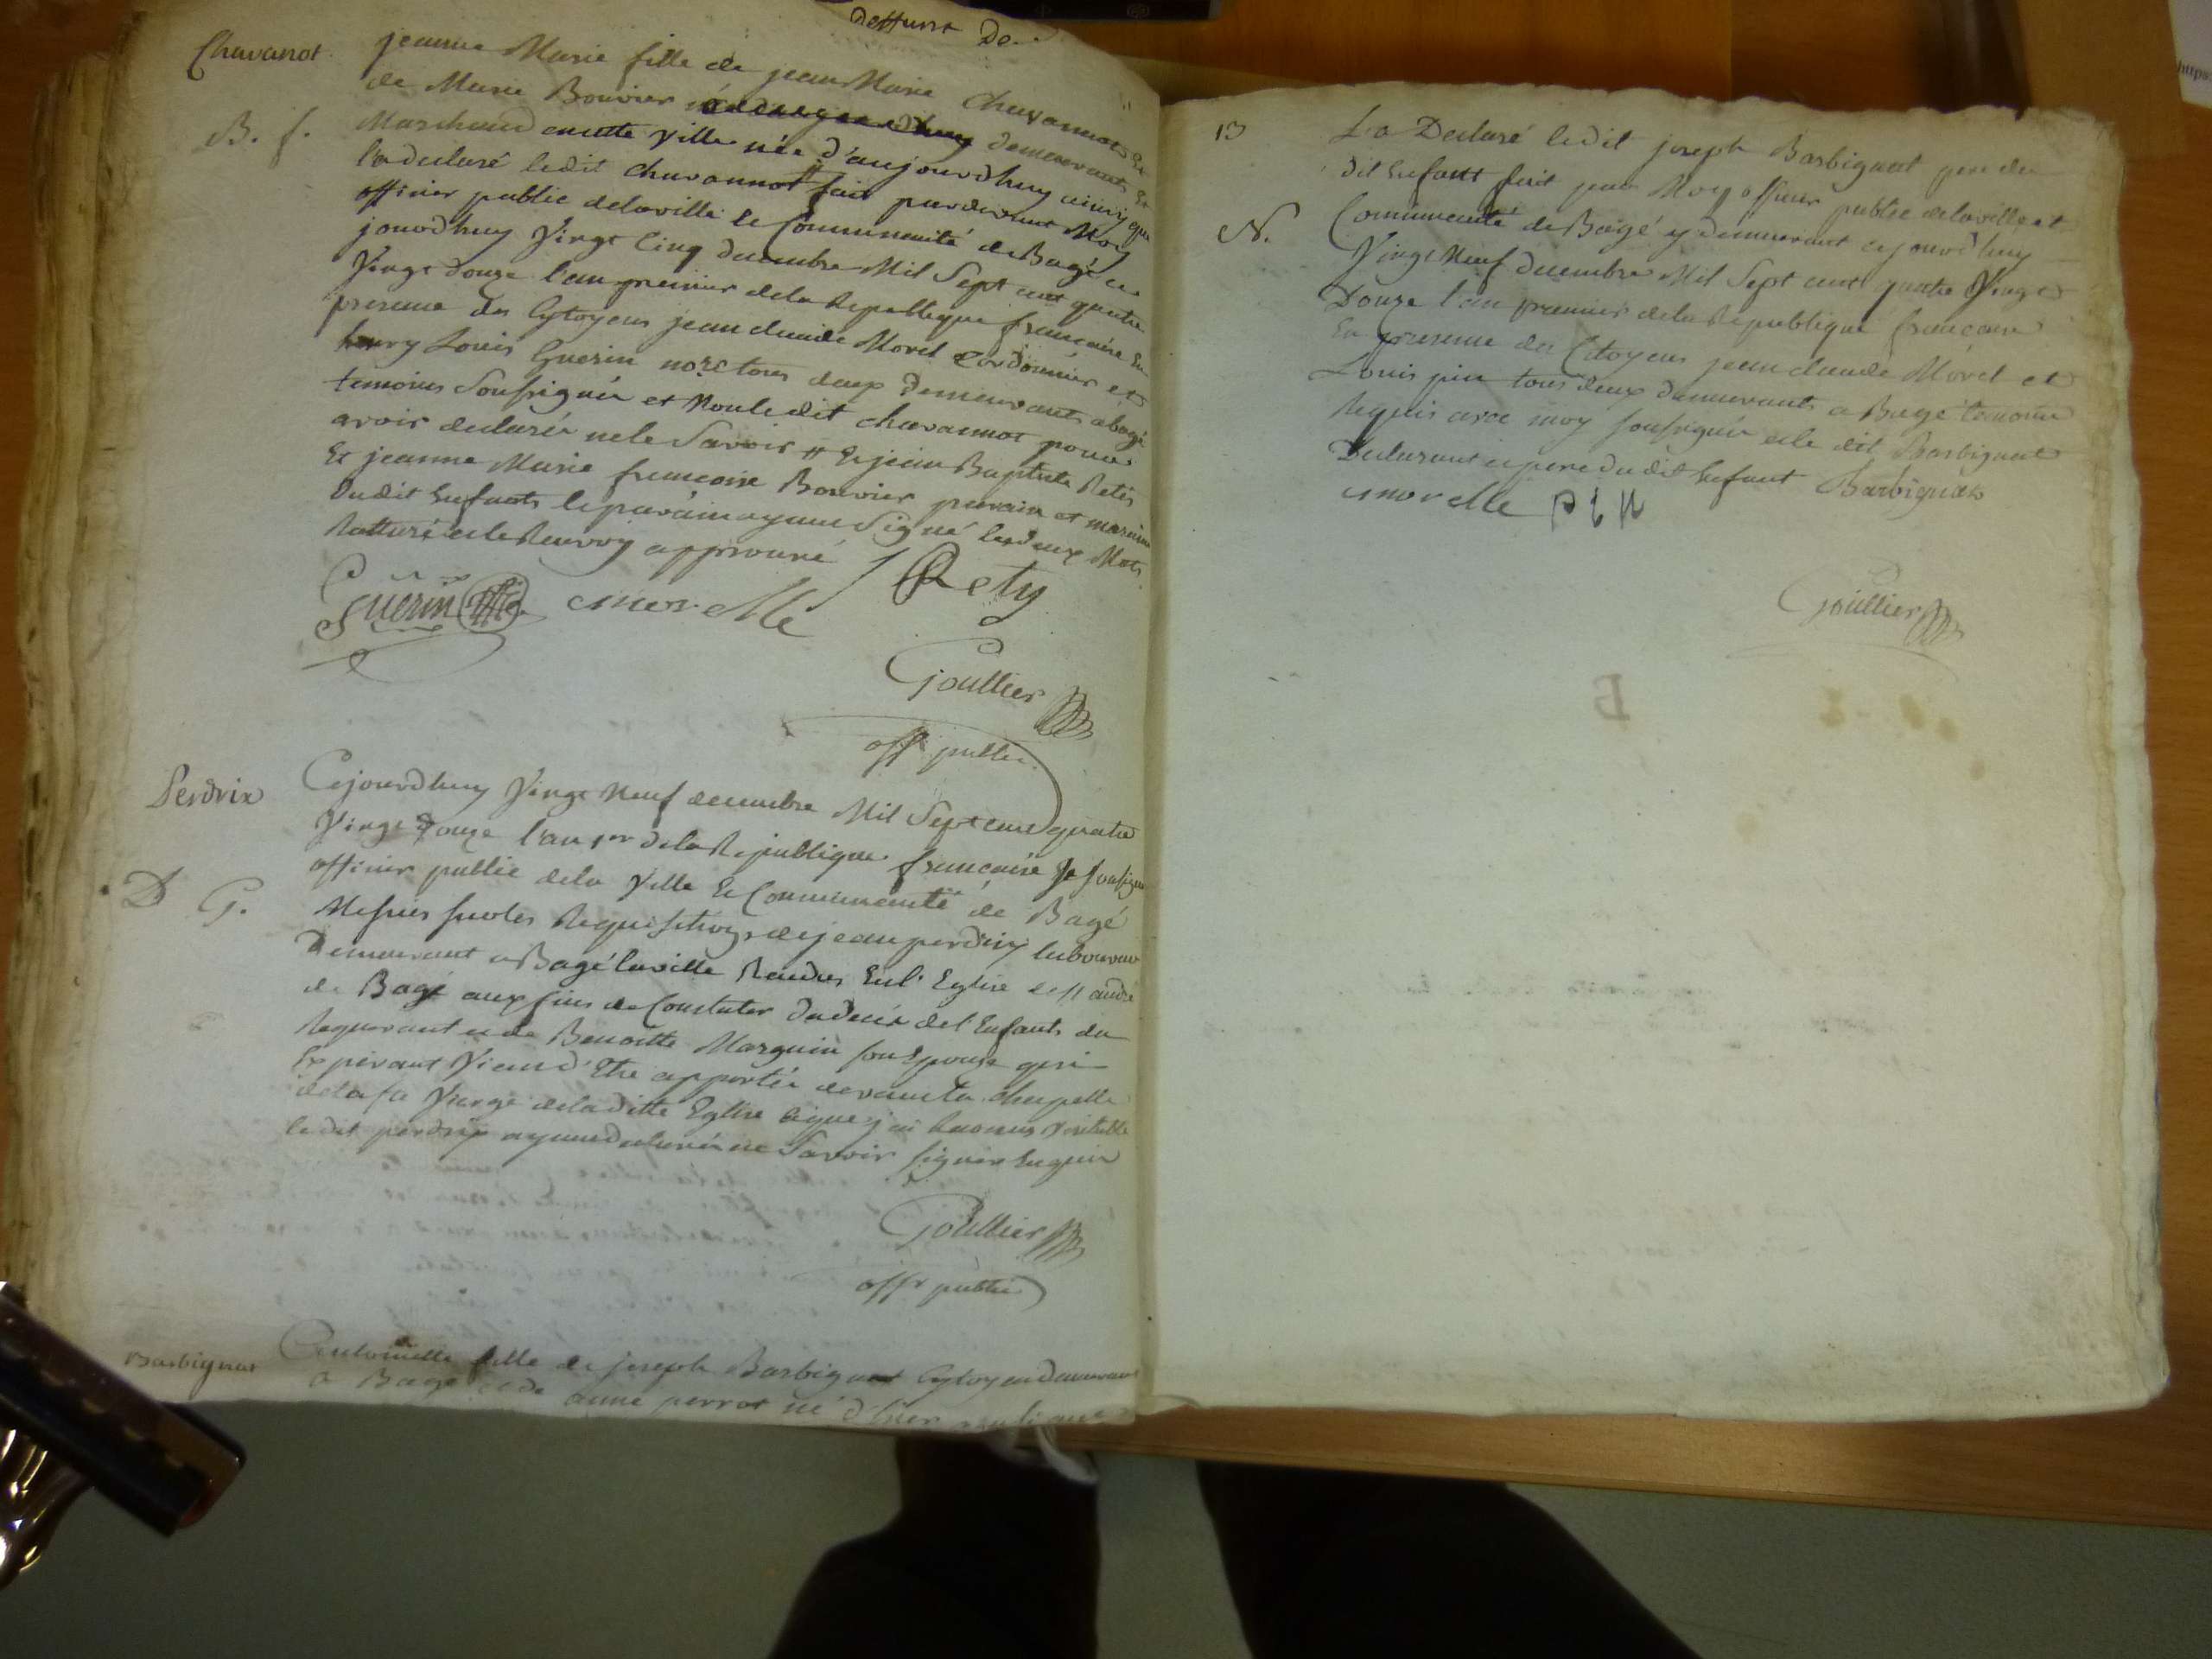 deffunt De
Chavanot
jeanne Marie fille de jean Marie Chavannot Et
de Marie Bouvier demeurants Et
B. f.
Marchand en cette ville née d'aujourdhuy ainsy que
l'a declaré ledit Chavannot fait pardevant Moy
officier public de la ville Et Communauté de Bagé ce
jourdhuy Vingt Cinq decembre Mil Sept cent quatre
Vingt douze l'an premier de la Republique francaise En
presence des Cytoyens jean claude Morel Cordonnier et
henry Louis Guerin no.re tous deux demeurants a bagé
temoins Soussignés et Non ledit chavannot pour
avoir declaré ne le Savoir # Et jean Baptiste Retis
Et jeanne Marie francoise Bouvier parain et maraine
Dudit Enfants le parain ayant Signé les deux Mots
Ratturé et le Renvoy approuvé
Guerin morelle Rety
Goullier
offr public
Perdrix
Cejourdhuy Vingt Neuf decembre Mil Sept cent quatre
Vingt Douze l'an 1er de la Republique francaise Je soussigné
officier public dela Ville Et Communauté de Bagé
D G.
Me suis sur les Requisitions de jean perdrix laboureur
Demeurant a Bagé la ville Rendus En l'Eglise de St andré
de Bagé aux fins de Constater du deces de l'Enfants du
Requerant et de Benoitte Marguin son Epouse qui
Expirant Viend d'Etre apportée devant la chapelle
de la ste Vierge de la ditte Eglise ce que j'ai Reconnus Veritable
ledit perdrix ayant declaré ne Savoir signer Enquis
Goullier
offr public
Barbignat
Antoinette fille de joseph Barbignat Cytoyen demeurant
a Bagé et de anne perrot né d'hier
13
La Declaré ledit joseph Barbignat pere du
dit Enfant fait par Moy officier public de la ville et
N.
Communauté de Bagé y demeurant ce jourdhuy
Vingt Neuf decembre Mil Sept cent quatre Vingt
Douze l'an premier de la Republique francaise
En presence des Citoyens jean claude Morel et
Louis pin tous deux demeurants a Bagé temoins
Requis avec moy soussignés et le dit Barbignat
Declarant et pere du dit Enfant Barbignat
morelle PIN
Goullier